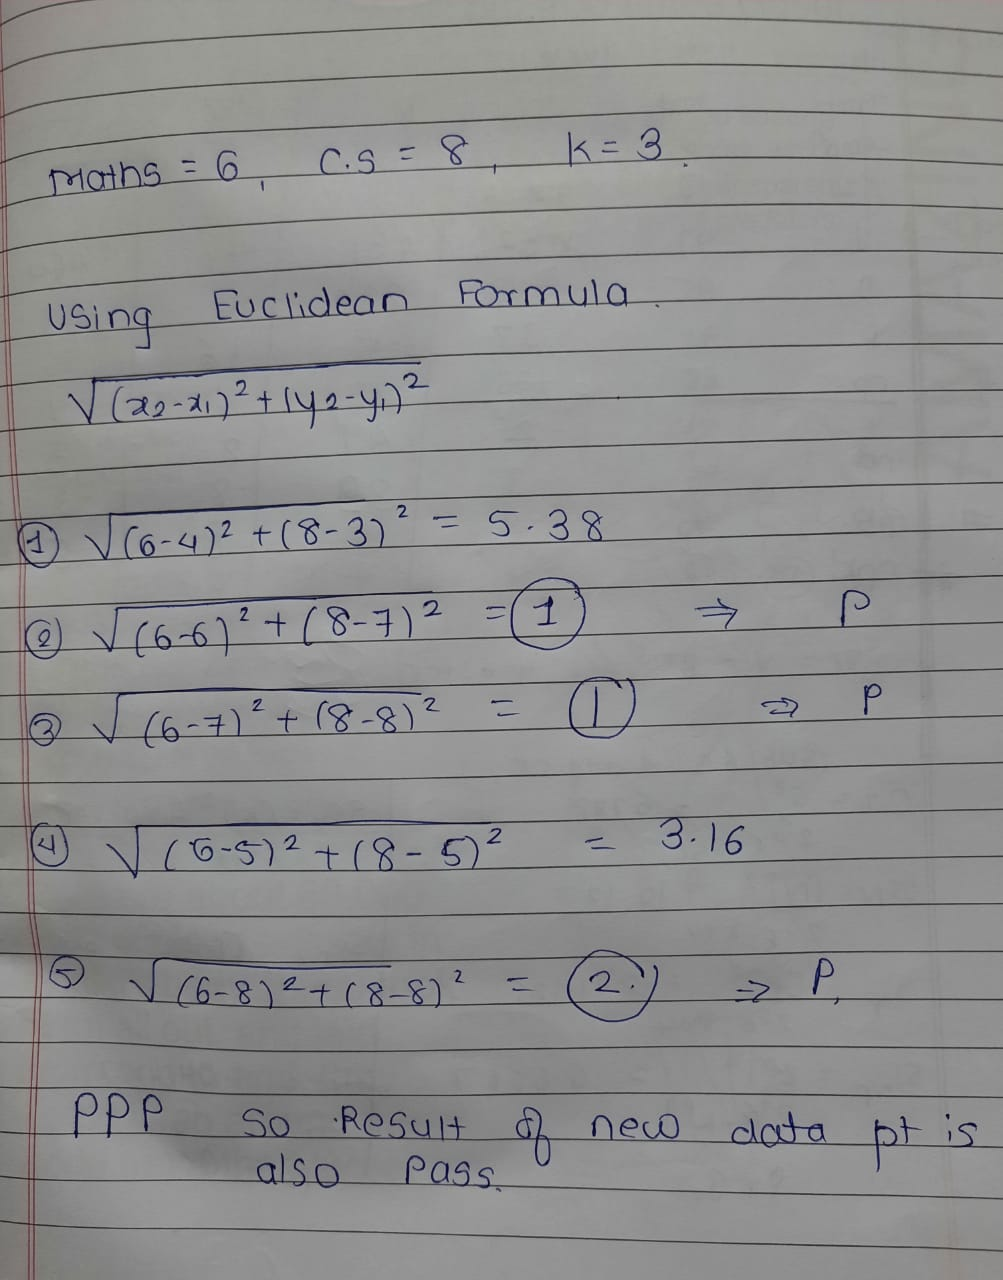 Maths = 6, C.S = 8, K = 3.
Using Euclidean Formula.
√(x₂-x₁)² + (y₂-y₁)²
① √(6-4)² + (8-3)² = 5.38
② √(6-6)² + (8-7)² = 1 ⇒ P
③ √(6-7)² + (8-8)² = 1 ⇒ P
④ √(6-5)² + (8-5)² = 3.16
⑤ √(6-8)² + (8-8)² = 2. ⇒ P,
PPP so Result of new data pt is
also Pass.